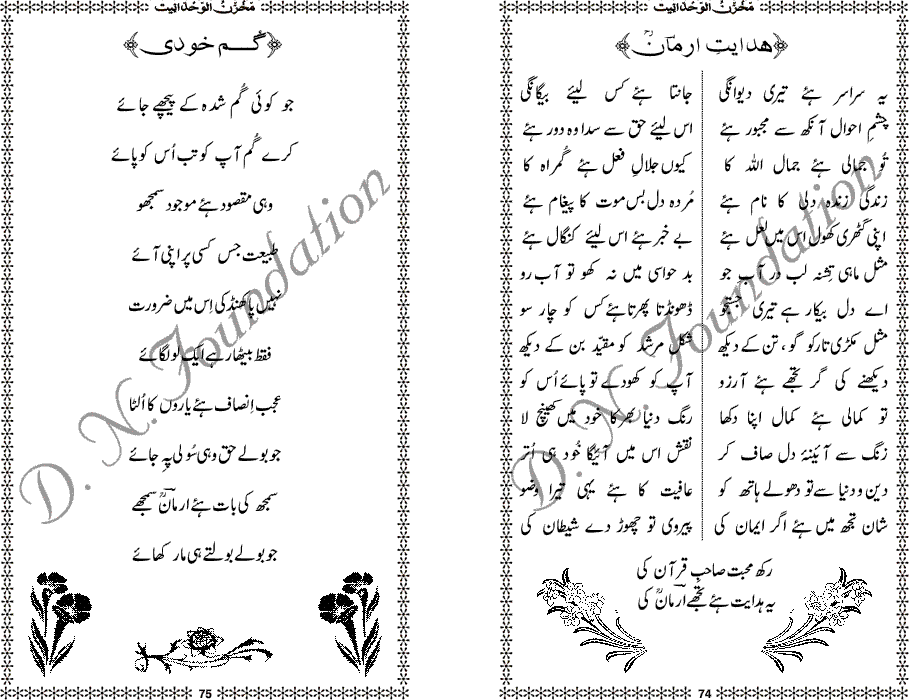 مَخْزَنُ الوَحْدَانِیت
ہدایتِ ارمانؒ
یہ سراسر ہے تیری دیوانگی جانتا ہے کس لیے بیگانگی
چشمِ احوال آنکھ سے مجبور ہے اس لیے حق سے سدا وہ دور ہے
تُو جمالی ہے جمال اللہ کا کیوں جلالِ فعل ہے گمراہ کا
زندگی زندہ دلی کا نام ہے مُردہ دل بس موت کا پیغام ہے
اپنی گٹھری کھول اس میں لعل ہے بے خبر ہے اس لیے کنگال ہے
مثل ماہی تِشنہ لب در آب جو بد حواسی میں نہ کھو تو آب رو
اے دل بیکار ہے تیری جستجو ڈھونڈتا پھرتا ہے کس کو چار سو
مثل مکڑی تار کو گو، تن کے دیکھ شکل مرشد کو مقیّد بن کے دیکھ
دیکھنے کی گر تجھے ہے آرزو آپ کو کھودے تو پائے اُس کو
تو کمالی ہے کمال اپنا دکھا رنگ دنیا بھر کا خود میں کھینچ لا
زنگ سے آئینۂ دل صاف کر نقش اس میں آئیگا خُود ہی اُتر
دین و دنیا سے تو دھولے ہاتھ کو عافیت کا ہے یہی تیرا وضو
شان تجھ میں ہے اگر ایمان کی پیروی تو چھوڑ دے شیطان کی
رکھ محبت صاحبِ قرآن کی
یہ ہدایت ہے تجھے ارمانؒ کی
74
مَخْزَنُ الوَحْدَانِیت
گم خودی
جو کوئی گُم شدہ کے پیچھے جائے
کرے گُم آپ کو تب اُس کو پائے
وہی مقصود ہے موجود سمجھو
طبیعت جس کسی پر اپنی آئے
نہیں پاکھنڈ کی اِس میں ضرورت
فقط بیٹھا رہے ایک لو لگائے
عجب اِنصاف ہے یاروں کا اُلٹا
جو بولے حق وہی سُولی پہ جائے
سمجھ کی بات ہے ارمانؒ سمجھے
جو بولے بولتے ہی مار کھائے
75
D. N. Foundation
D. N. Foundation